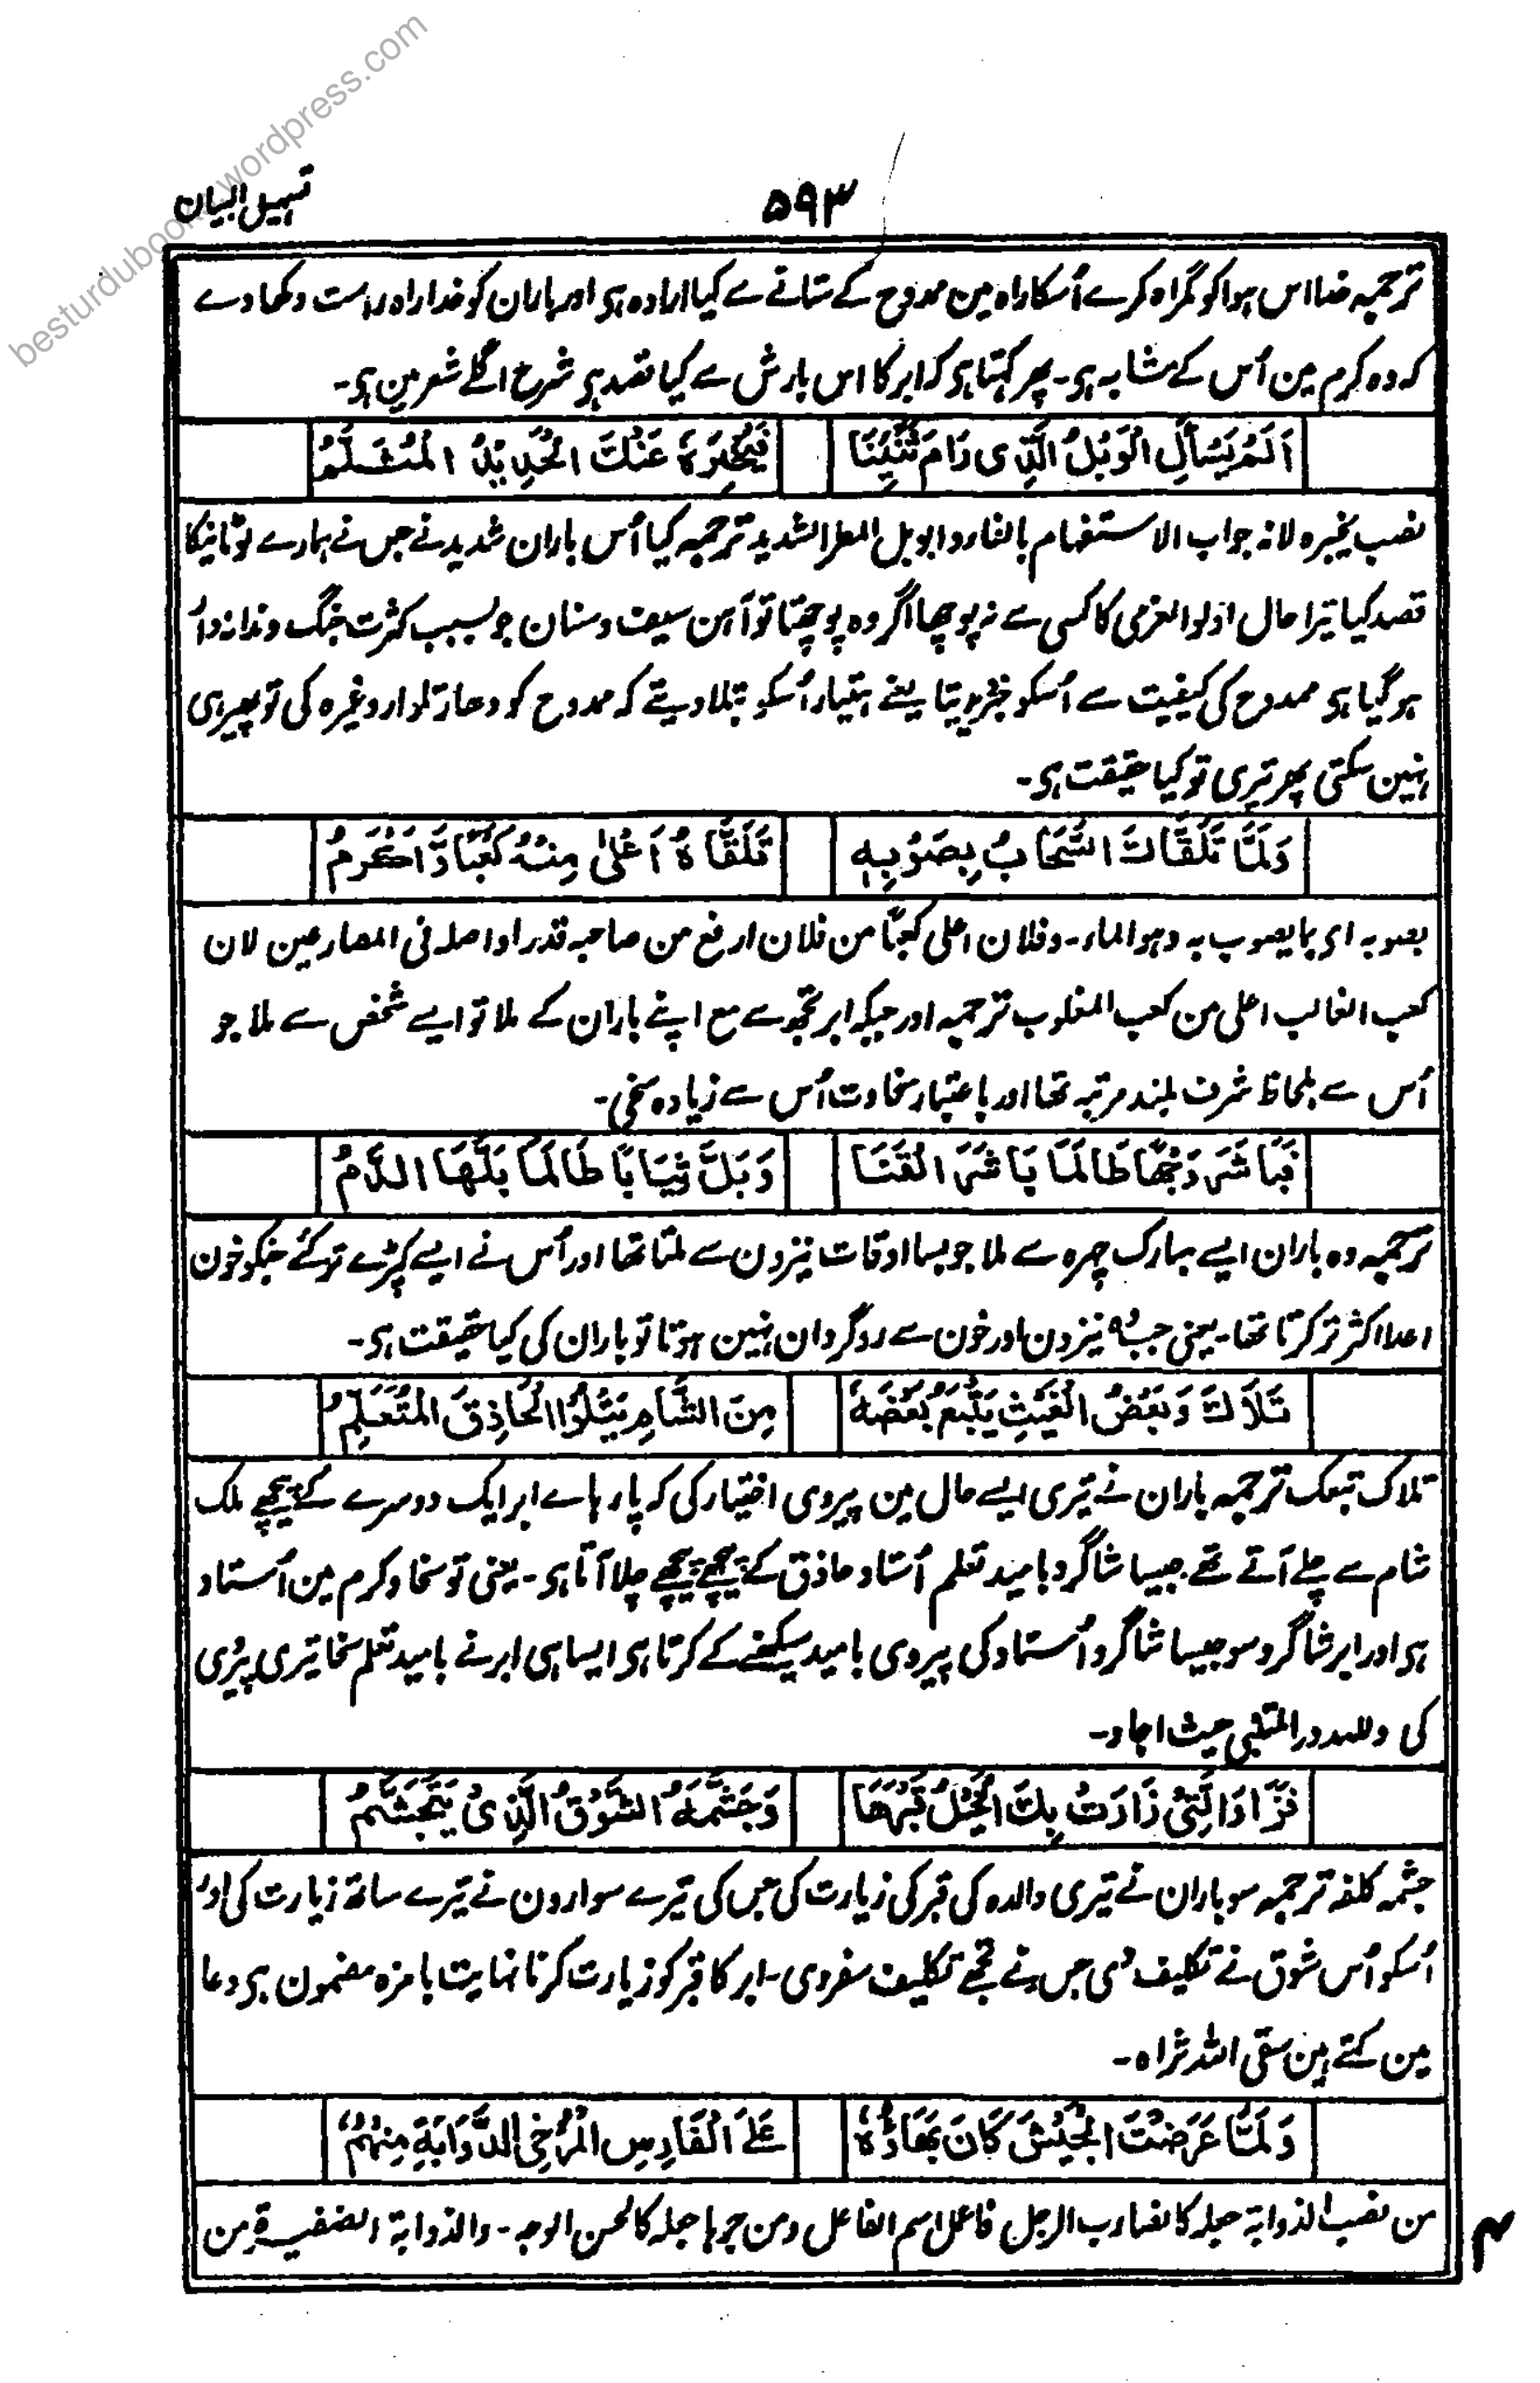 besturdubooks.wordpress.com
۵۹۳
تسہیل البیان
ترجمہ خدا اس ہوا کو گمراہ کرے اُسکا راہ مین ممدوح کے ستانے سے کیا ارادہ ہی اور باران کو خدا راہ راست دکھا دے
کہ وہ کرم مین اُس کے مشابہ ہو۔ پھر کہتا ہی کہ ابر کا اس بارش سے کیا قصد ہی شرح اگلے شعر مین ہی۔
اَلَمْ يَسْأَلِ الْوَبْلُ الَّذِى رَامَ ثَنْيَنَا
فَيُخْبِرَهُ عَنْكَ الْحَدِيْدُ الْمُثَلَّمُ
نصب یخبرہ لانہ جواب الاستفہام بالفاء والوبل المطر الشدید ترجمہ کیا اُس باران شدید نے جس نے ہمارے لوٹانیکا
قصد کیا تیرا حال اولوالعزمی کا کسی سے نہ پوچھا اگر وہ پوچھتا تو آہن سیف و سنان جو بسبب کثرت جنگ دندانہ دار
ہو گیا ہی ممدوح کی کیفیت سے اُسکو خبر دیتا یعنے ہتیار اُسکو بتلا دیتے کہ ممدوح کو دھار تلوار وغیرہ کی تو پھیر ہی
نہین سکتی پھر تیری تو کیا حقیقت ہی۔
وَلَمَّا تَلَقَّاكَ السَّحَابُ بِصَوْبِهٖ
تَلَقَّاهُ اَعْلٰى مِنْهُ كَعْبًا وَّاَكْرَمُ
بصوبہ ای بما یصوب بہ وہو الماء۔ وفلان اعلی کعبًا من فلان ارفع من صاحبہ قدرا واصلہ فی المصارعین لان
کعب الغالب اعلی من کعب المغلوب ترجمہ اور جبکہ ابر تجھ سے مع اپنے باران کے ملا تو ایسے شخص سے ملا جو
اُس سے بلحاظ شرف بلند مرتبہ تھا اور باعتبار سخاوت اُس سے زیادہ سخی۔
فَبَاشَرَ وَجْهًا طَالَمَا بَاشَرَ الْقَنَا
وَبَلَّ ثِيَابًا طَالَمَا بَلَّهَا الدَّمُ
ترجمہ وہ باران ایسے مبارک چہرہ سے ملا جو بسا اوقات نیزون سے ملتا تھا اور اُس نے ایسے کپڑے تر کئے جنکو خون
اعدا اکثر تر کرتا تھا۔ یعنی جب وہ نیزون اور خون سے روگردان نہین ہوتا تو باران کی کیا حقیقت ہی۔
تَلَاكَ وَبَعْضُ الْغَيْثِ يَتْبَعُ بَعْضَهُ
مِنَ الشَّامِ يَتْلُوا الْحَاذِقَ الْمُتَعَلِّمُ
تلاک تبعک ترجمہ باران نے تیری ایسے حال مین پیروی اختیار کی کہ پارہاے ابر ایک دوسرے کے پیچھے ملک
شام سے چلے آتے تھے جیسا شاگرد بامید تعلم اُستاد حاذق کے پیچھے پیچھے چلا آتا ہی۔ یعنی تو سخا و کرم مین اُستاد
ہی اور ابر شاگرد سو جیسا شاگرد اُستاد کی پیروی بامید سیکھنے کے کرتا ہی ایسا ہی ابر نے بامید تعلم سخا تیری پیروی
کی وللہ در المتنبی حیث اجاد۔
فَزَارَ الَّتِيْ زَارَتْ بِكَ الْخَيْلُ قَبْرَهَا
وَجَشَّمَهُ الشَّوْقُ الَّذِىْ يَتَجَشَّمُ
جشمہ کلفہ ترجمہ سو باران نے تیری والدہ کی قبر کی زیارت کی جس کی تیرے سوارون نے تیرے ساتھ زیارت کی اور
اُسکو اُس شوق نے تکلیف دی جس نے تجھے تکلیف سفر دی۔ ابر کا قبر کو زیارت کرنا نہایت با مزہ مضمون ہی دعا
مین کہتے ہین سقی اللہ ثراہ۔
وَلَمَّا عَرَضْتَ الْجَيْشَ كَانَ بَهَاؤُهُ
عَلَى الْفَارِسِ الْمُرْخِى الذَّوَابَةِ مِنْهُمُ
من نصب الذوابة جعلہ کالضارب الرجل فاعل اسم الفاعل ومن جرہا جعلہ کالحسن الوجہ۔ والذوابة الضفیرة من